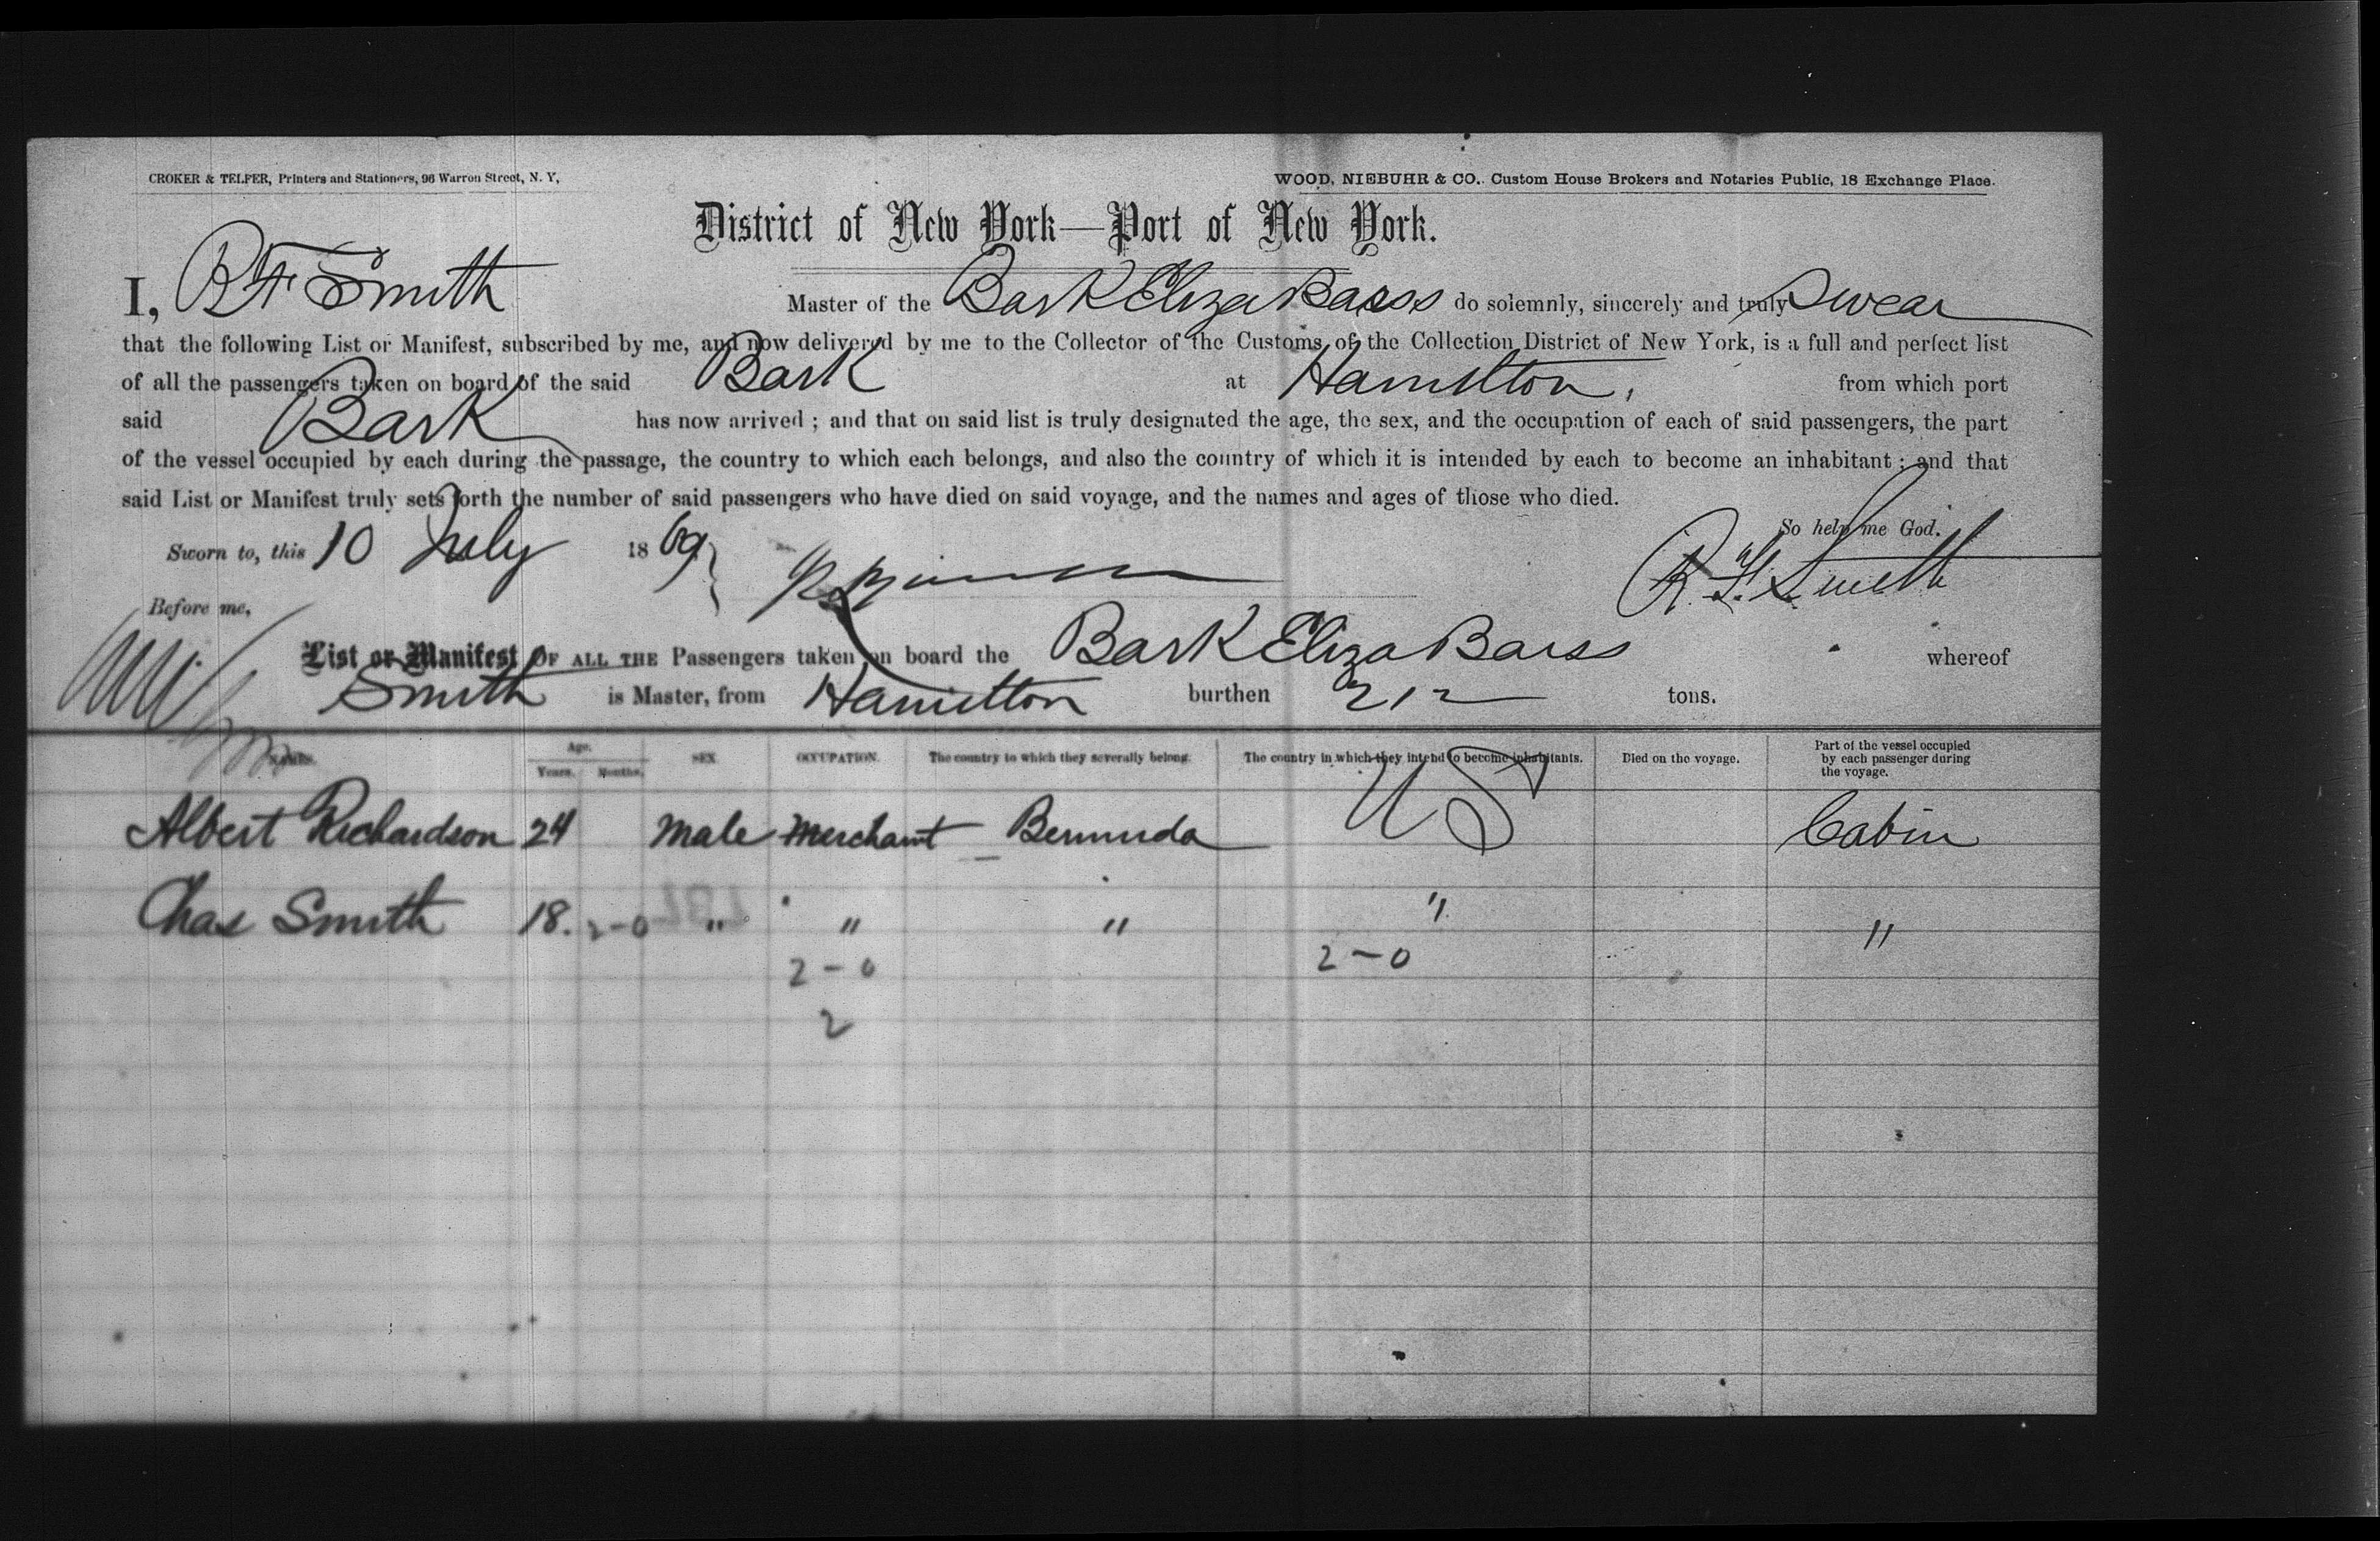 CROKER & TELFER, Printers and Stationers, 96 Warren Street, N. Y,
WOOD, NIEBUHR & CO., Custom House Brokers and Notaries Public, 18 Exchange Place.
District of New York—Port of New York.
I, R F Smith Master of the Bark Eliza Barss do solemnly, sincerely and truly Swear
that the following List or Manifest, subscribed by me, and now delivered by me to the Collector of the Customs of the Collection District of New York, is a full and perfect list
of all the passengers taken on board of the said Bark at Hamilton, from which port
said Bark has now arrived ; and that on said list is truly designated the age, the sex, and the occupation of each of said passengers, the part
of the vessel occupied by each during the passage, the country to which each belongs, and also the country of which it is intended by each to become an inhabitant ; and that
said List or Manifest truly sets forth the number of said passengers who have died on said voyage, and the names and ages of those who died.
So help me God.
Sworn to, this 10 July 1869
R. F. Smith
Before me,
List or Manifest OF ALL THE Passengers taken on board the Bark Eliza Barss whereof
Smith is Master, from Hamilton burthen 212 tons.
NAMES. Age. Years. Months. SEX OCCUPATION. The country to which they severally belong. The country in which they intend to become inhabitants. Died on the voyage. Part of the vessel occupied by each passenger during the voyage.
Albert Richardson 24 Male Merchant Bermuda US Cabin
Chas Smith 18. 2-0 " " " " "
2-0 2-0
2